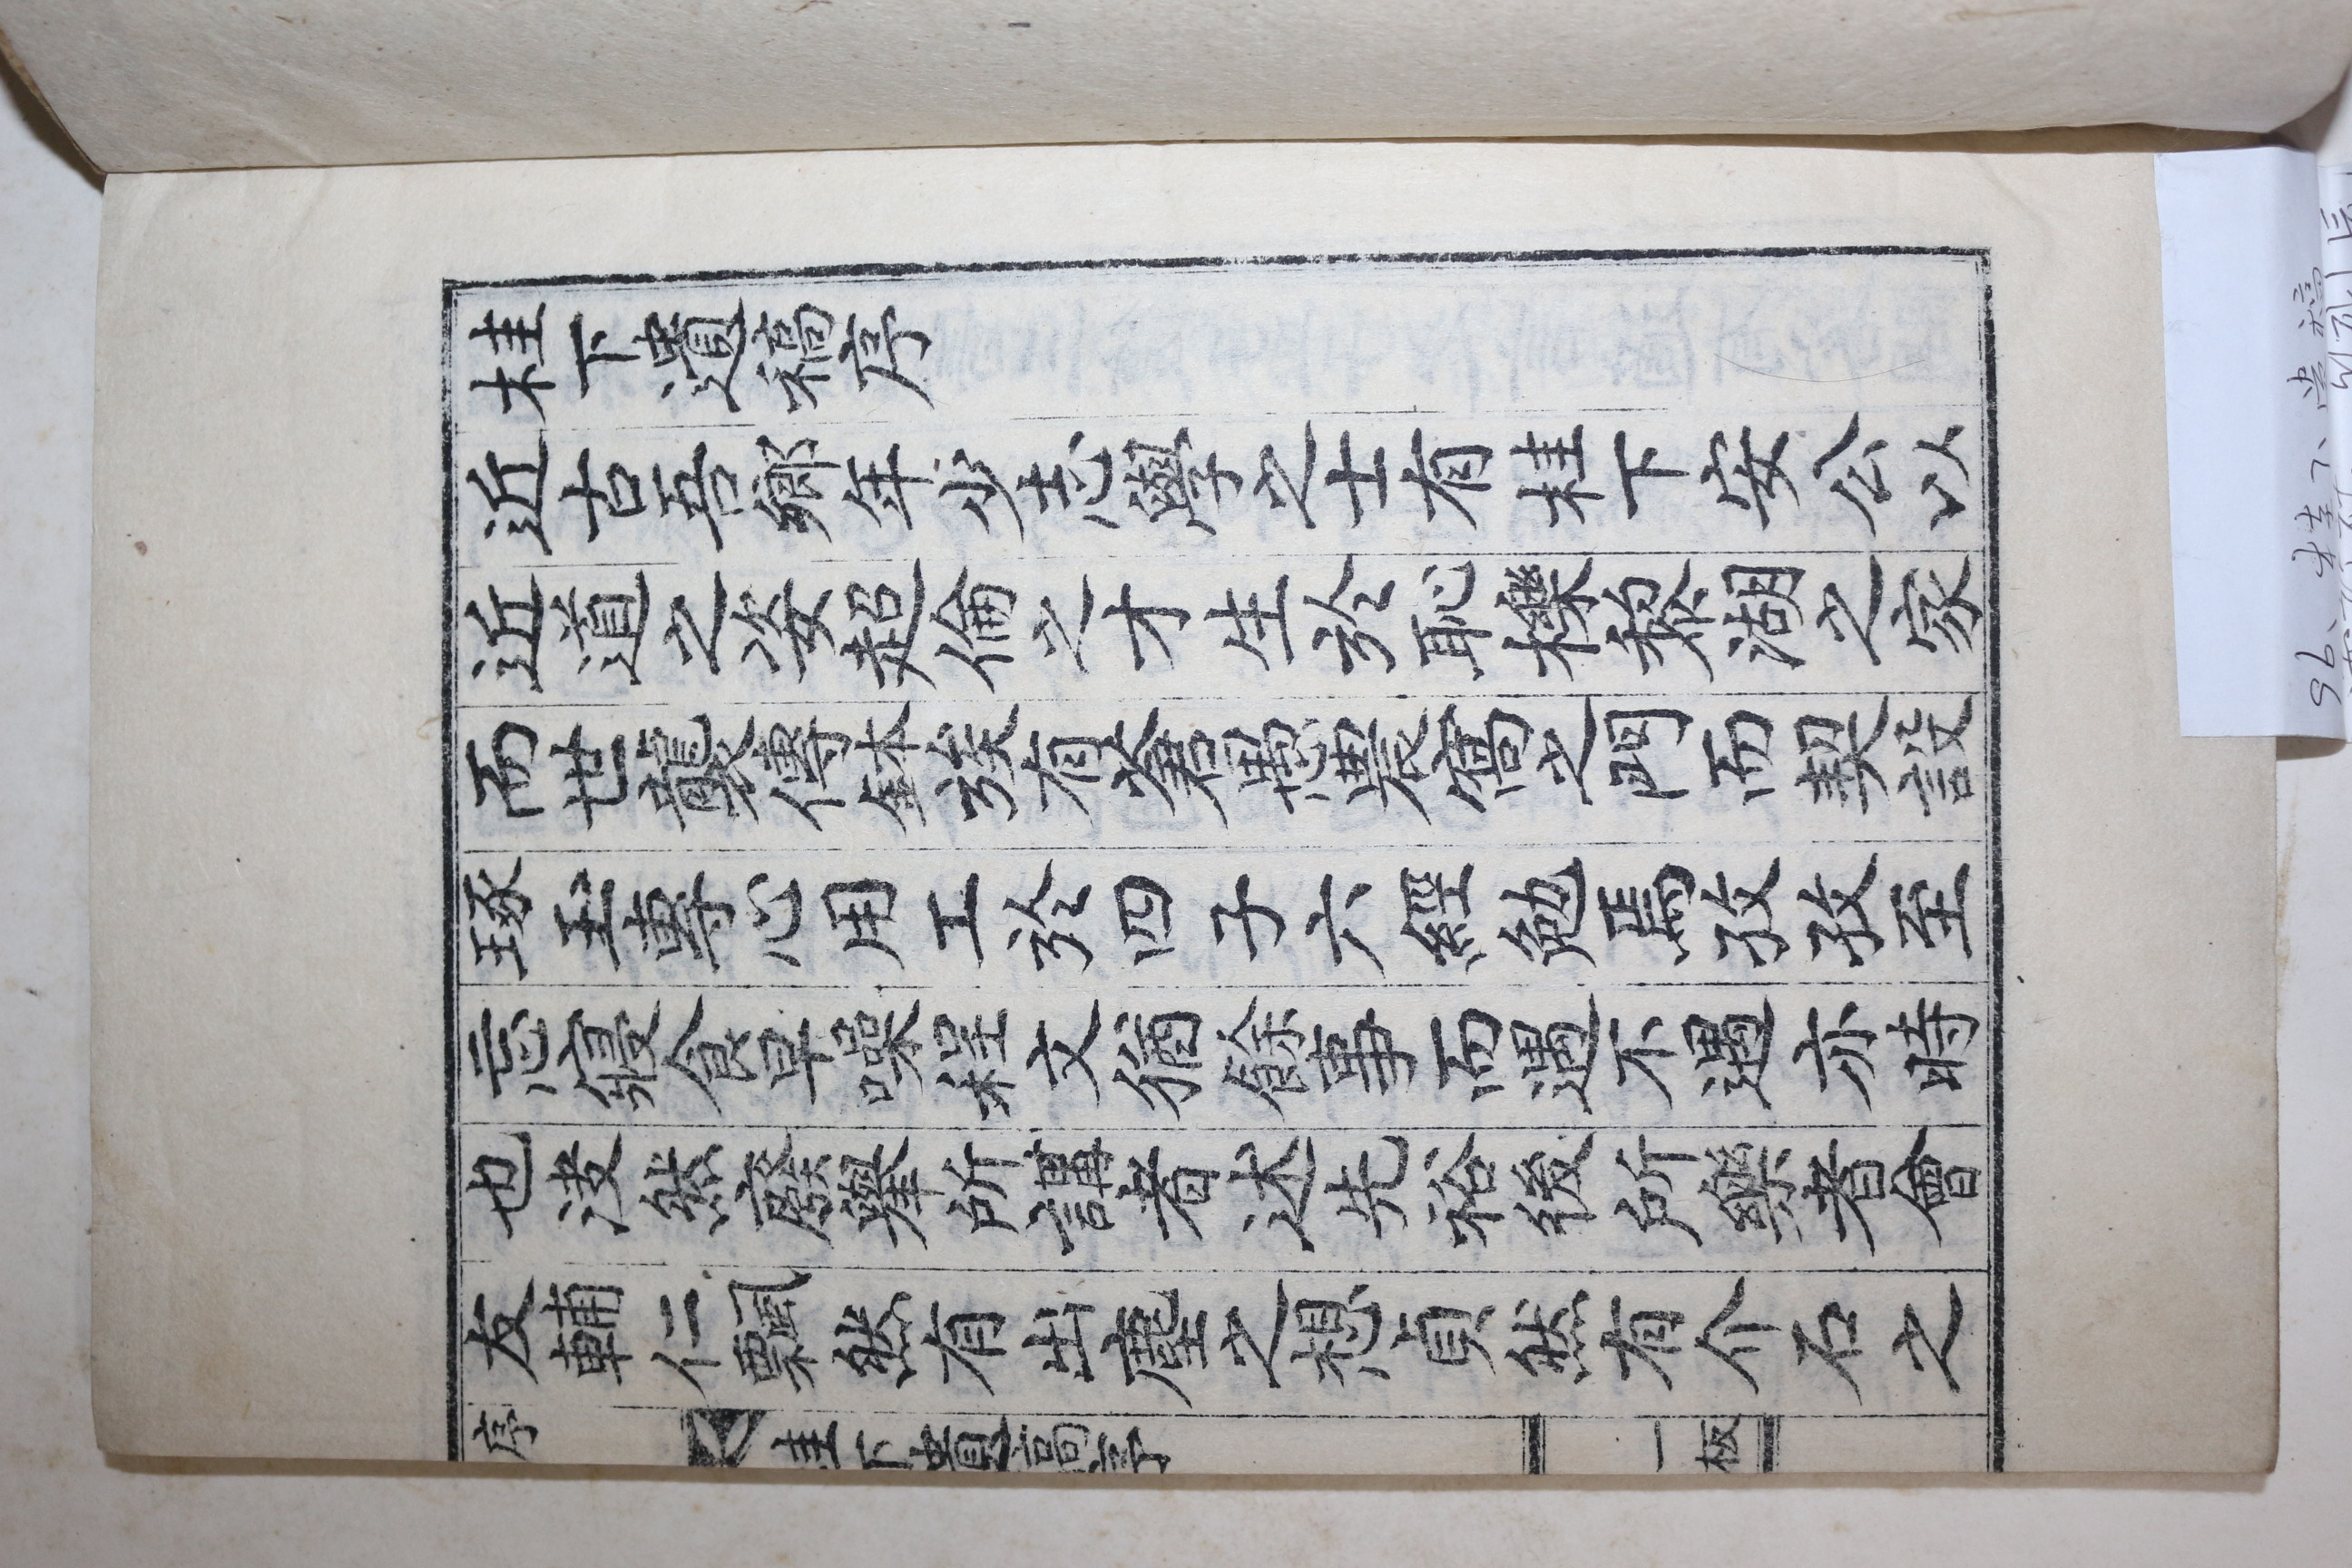 桂下遺稿序
近古吾鄉年少志學之士有桂下安公以
近道之姿超倫之才生於恥櫟黎湖之家
而世襲傳鉢族有蒼愚農窩之門而契設
琢玉專心用工於四子六經勉焉孜孜至
忘寢食早噪程文猶餘事而遇不遇亦時
也浚然廢擧所講者述先裕後所樂者會
友輔仁飄然有出塵之想貞然有介石之
序
桂下遺稿序
一板
96、桂下遺稿